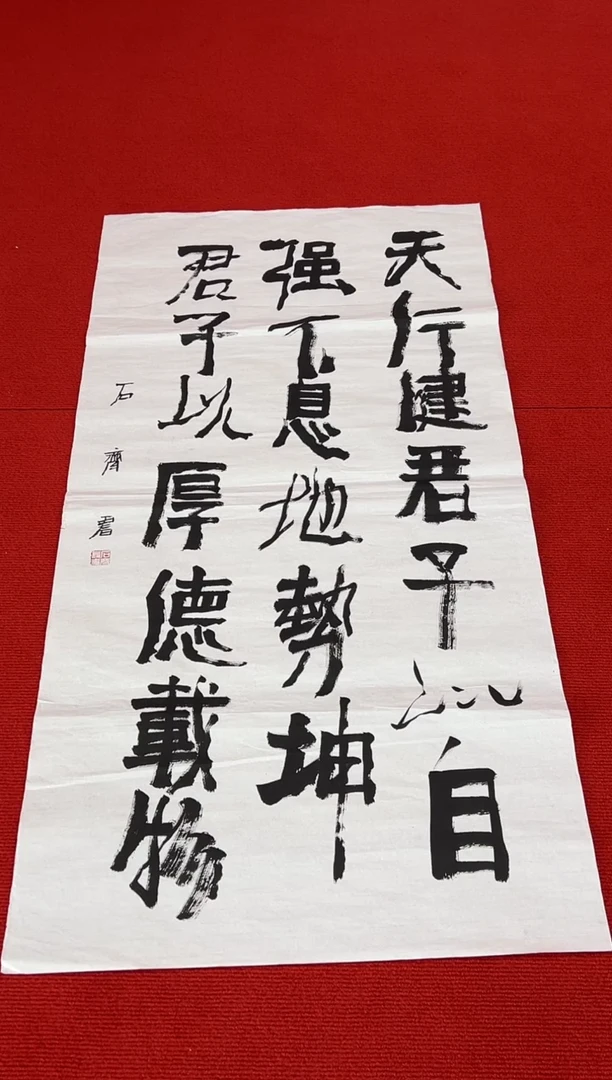 天行健君子以自
强不息地勢坤
君子以厚德載物
石齊君